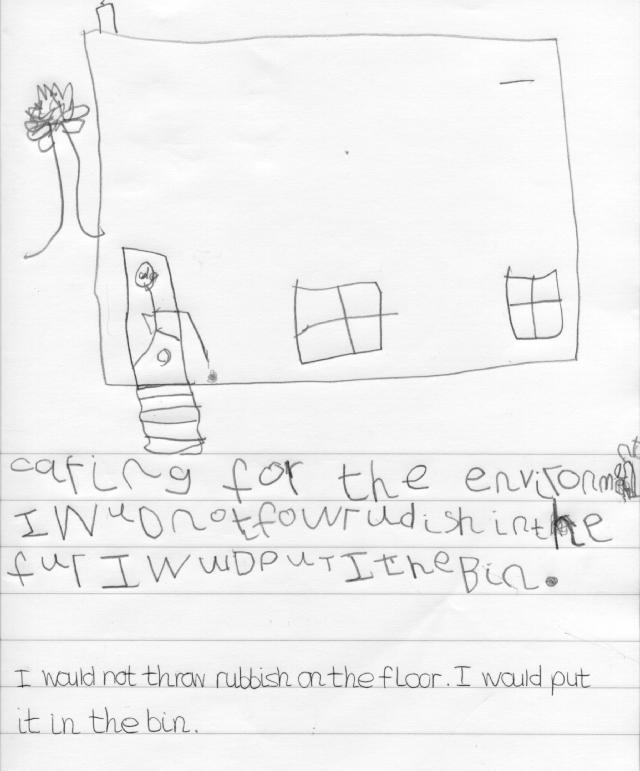 caring for the environment
I WuD not fowr udish in the
fur I WuuD PuT I the Bin.
I would not throw rubbish on the floor. I would put
it in the bin.